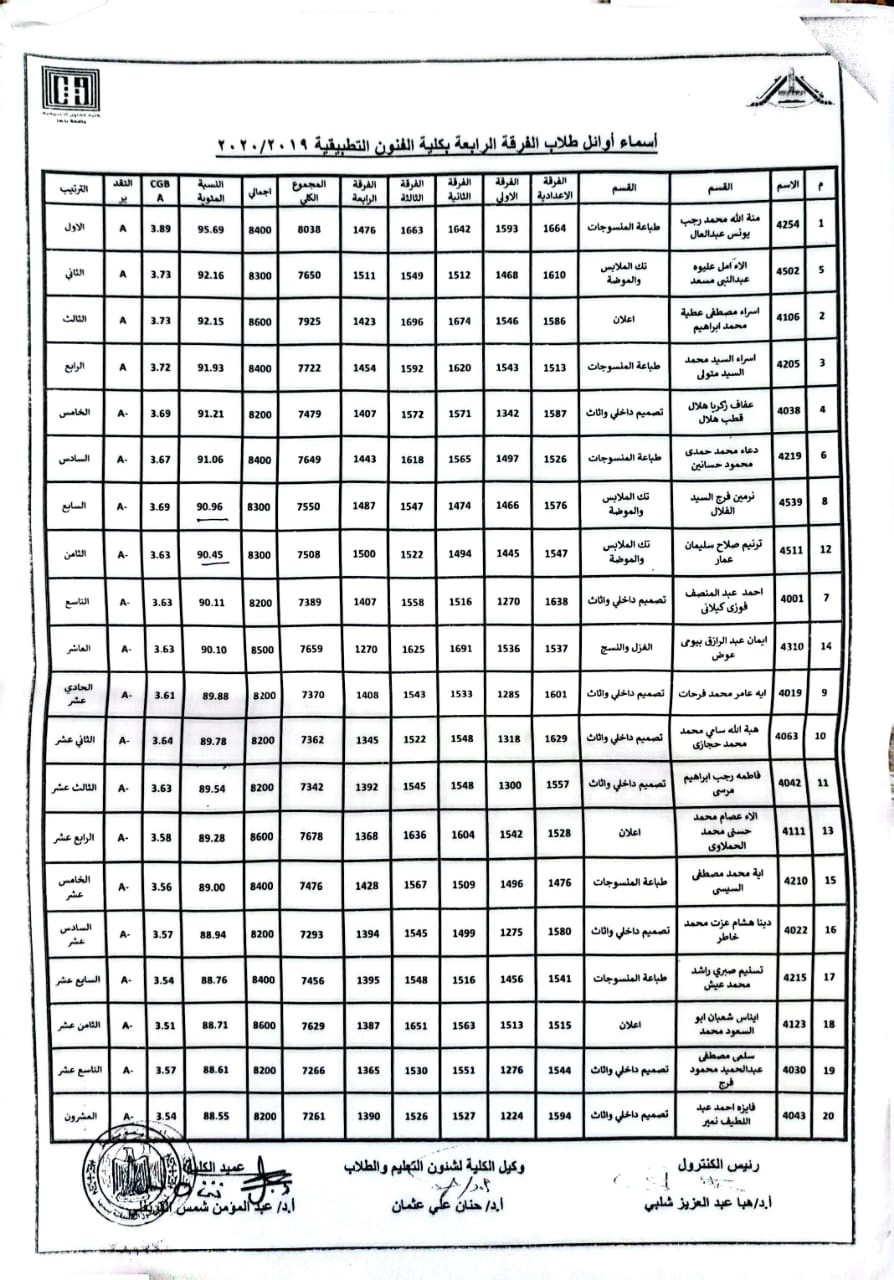 أسماء أوائل طلاب الفرقة الرابعة بكلية الفنون التطبيقية ٢٠٢٠/٢٠١٩
م الاسم القسم القسم الفرقة الاعدادية الفرقة الاولي الفرقة الثانية الفرقة الثالثة الفرقة الرابعة المجموع الكلي اجمالي النسبة المئوية CGBA التقدير الترتيب
1 4254 منة الله محمد رجب يونس عبدالعال طباعة المنسوجات 1664 1593 1642 1663 1476 8038 8400 95.69 3.89 A الاول
5 4502 الاء امل عليوه عبدالنبى مسعد تك الملابس والموضة 1610 1468 1512 1549 1511 7650 8300 92.16 3.73 A الثاني
2 4106 اسراء مصطفى عطية محمد ابراهيم اعلان 1586 1546 1674 1696 1423 7925 8600 92.15 3.73 A الثالث
3 4205 اسراء السيد محمد السيد متولى طباعة المنسوجات 1513 1543 1620 1592 1454 7722 8400 91.93 3.72 A الرابع
4 4038 عفاف زكريا هلال قطب هلال تصميم داخلي واثاث 1587 1342 1571 1572 1407 7479 8200 91.21 3.69 A- الخامس
6 4219 دعاء محمد حمدى محمود حسانين طباعة المنسوجات 1526 1497 1565 1618 1443 7649 8400 91.06 3.67 A- السادس
8 4539 نرمين فرج السيد الفلال تك الملابس والموضة 1576 1466 1474 1547 1487 7550 8300 90.96 3.69 A- السابع
12 4511 ترنيم صلاح سليمان عمار تك الملابس والموضة 1547 1445 1494 1522 1500 7508 8300 90.45 3.63 A- الثامن
7 4001 احمد عبد المنصف فوزى كيلانى تصميم داخلي واثاث 1638 1270 1516 1558 1407 7389 8200 90.11 3.63 A- التاسع
14 4310 ايمان عبد الرازق بيومى عوض الغزل والنسج 1537 1536 1691 1625 1270 7659 8500 90.10 3.63 A- العاشر
9 4019 ايه عامر محمد فرحات تصميم داخلي واثاث 1601 1285 1533 1543 1408 7370 8200 89.88 3.61 A- الحادي عشر
10 4063 هبة الله سامي محمد محمد حجازى تصميم داخلي واثاث 1629 1318 1548 1522 1345 7362 8200 89.78 3.64 A- الثاني عشر
11 4042 فاطمه رجب ابراهيم مرسى تصميم داخلي واثاث 1557 1300 1548 1545 1392 7342 8200 89.54 3.63 A- الثالث عشر
13 4111 الاء عصام محمد حسنى محمد الحملاوى اعلان 1528 1542 1604 1636 1368 7678 8600 89.28 3.58 A- الرابع عشر
15 4210 اية محمد مصطفى السيسى طباعة المنسوجات 1476 1496 1509 1567 1428 7476 8400 89.00 3.56 A- الخامس عشر
16 4022 دينا هشام عزت محمد خاطر تصميم داخلي واثاث 1580 1275 1499 1545 1394 7293 8200 88.94 3.57 A- السادس عشر
17 4215 تسنيم صبري راشد محمد عيش طباعة المنسوجات 1541 1456 1516 1548 1395 7456 8400 88.76 3.54 A- السابع عشر
18 4123 ايناس شعبان ابو السعود محمد اعلان 1515 1513 1563 1651 1387 7629 8600 88.71 3.51 A- الثامن عشر
19 4030 سلمى مصطفى عبدالحميد محمود فرج تصميم داخلي واثاث 1544 1276 1551 1530 1365 7266 8200 88.61 3.57 A- التاسع عشر
20 4043 فايزه احمد عبد اللطيف نمير تصميم داخلي واثاث 1594 1224 1527 1526 1390 7261 8200 88.55 3.54 A- العشرون
رئيس الكنترول وكيل الكلية لشئون التعليم والطلاب عميد الكلية
أ.د/هبا عبد العزيز شلبي أ.د/ حنان علي عثمان أ.د/ عبد المؤمن شمس